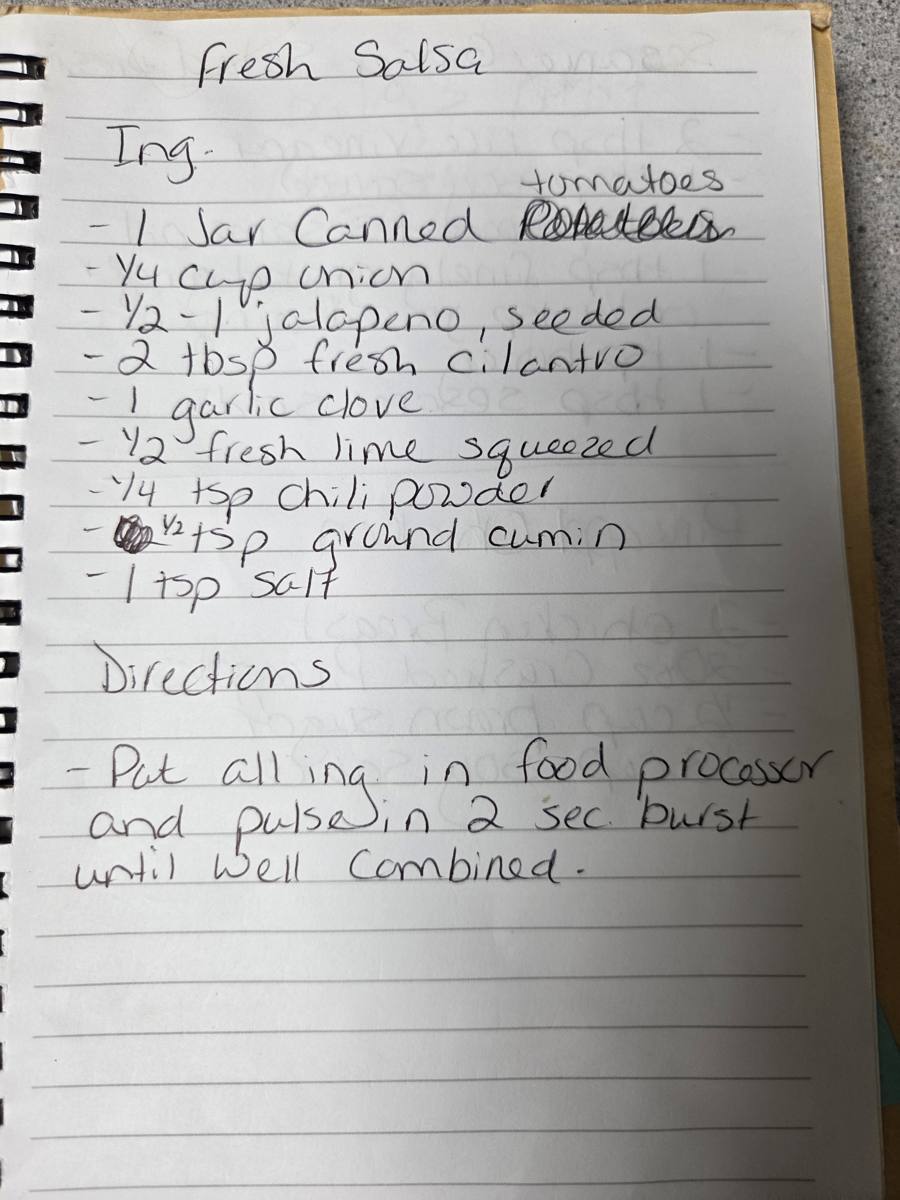 Fresh Salsa
Ing.
- 1 Jar Canned tomatoes
- 1/4 cup onion
- 1/2 - 1 jalapeno, seeded
- 2 tbsp fresh cilantro
- 1 garlic clove
- 1/2 fresh lime squeezed
- 1/4 tsp chili powder
- 1/2 tsp ground cumin
- 1 tsp salt
Directions
- Put all ing. in food processor
and pulse in 2 sec. burst
until well combined.